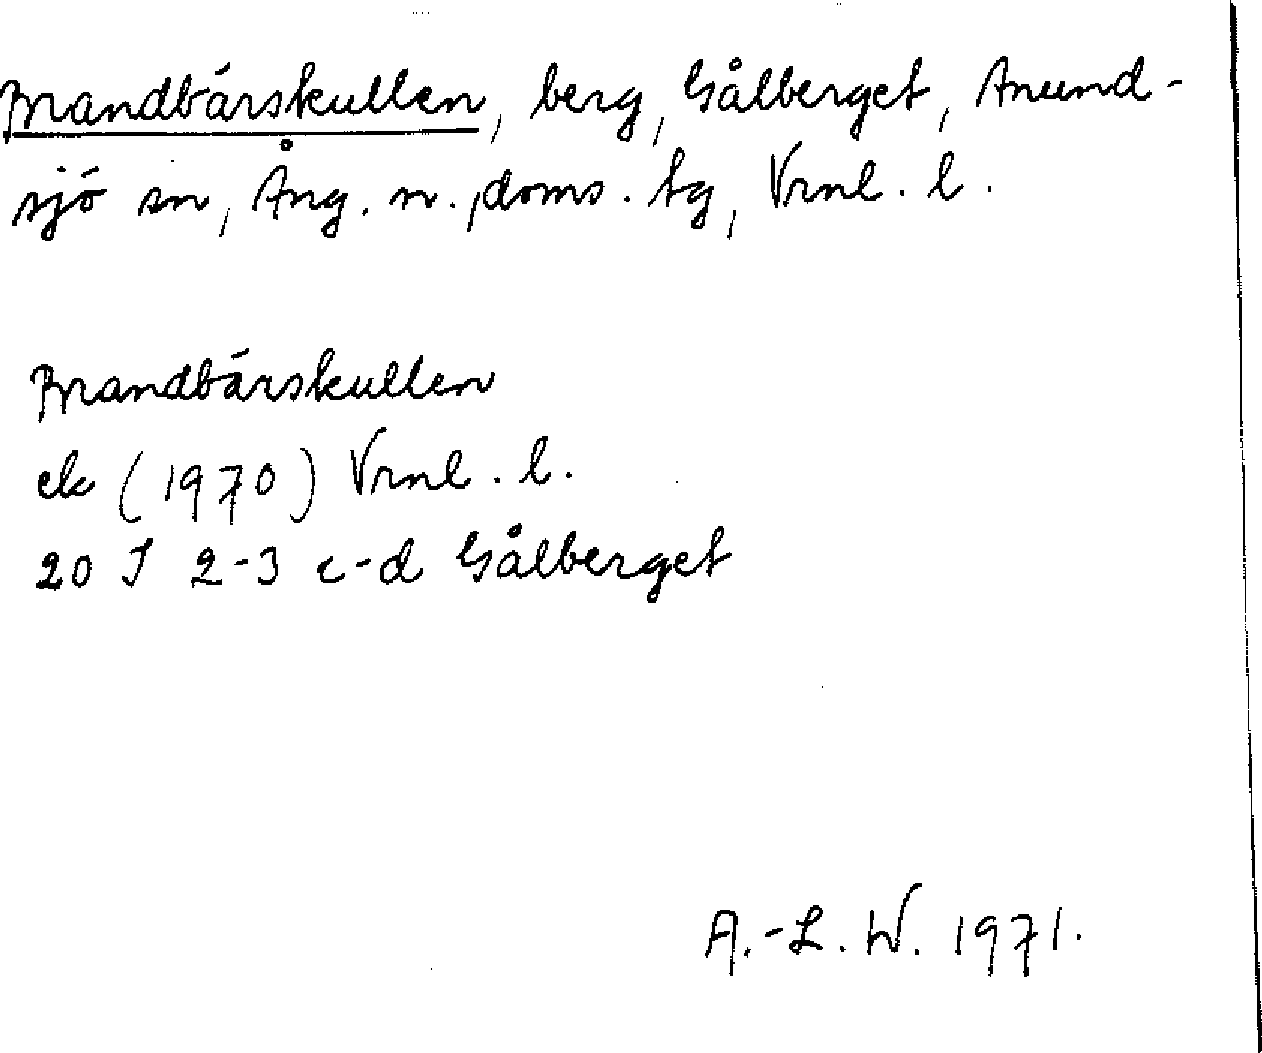 Brandbärskullen, berg, Gålberget, Anund-
sjö sn, Ång. n., doms. tg, Vrnl. l.
Brandbärskullen
ek (1970) Vrnl. l.
20 I 2-3 c-d Gålberget
A.-L. W. 1971.